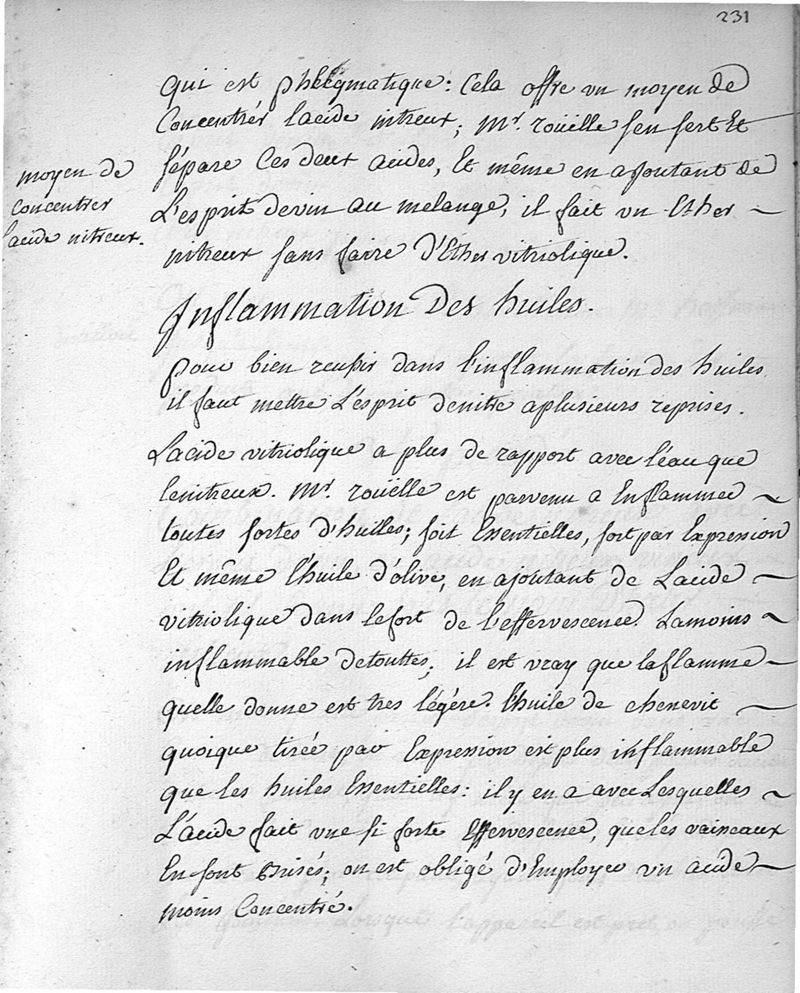 231
qui est phlegmatique: Cela offre un moyen de
Concentrér lacide nitreux; Mr. roüelle sen sert Et
sépare Ces deux acides, Et même en ajoutant de
L'esprit devin au melange, il fait un Ether
nitreux sans faire d'Ether vitriolique.
moyen de
Concentrer
lacide nitreux.
Inflammation Des huiles.
pour bien reussir dans l'inflammation des huiles
il faut mettre L'esprit denitre aplusieurs reprises.
Lacide vitriolique a plus de rapport avec l'eau que
lenitreux. Mr. roüelle est parvenu a Enflammer
toutes sortes d'huilles; soit Essentielles, soit par Expression
Et même l'huile d'olive, en ajoutant de Lacide
vitriolique dans lefort de l'effervescence. Lamoins
inflammable detouttes; il est vray que laflamme
quelle donne est tres légére. l'huile de chenevit
quoique tirée par Expression est plus inflammable
que les huiles Essentielles: il y en a avec Lesquelles
L'acide fait une si forte Effervescence, queles vaisseaux
En sont Brisés; on est obligé d'Employer un acide
moins Concentré.